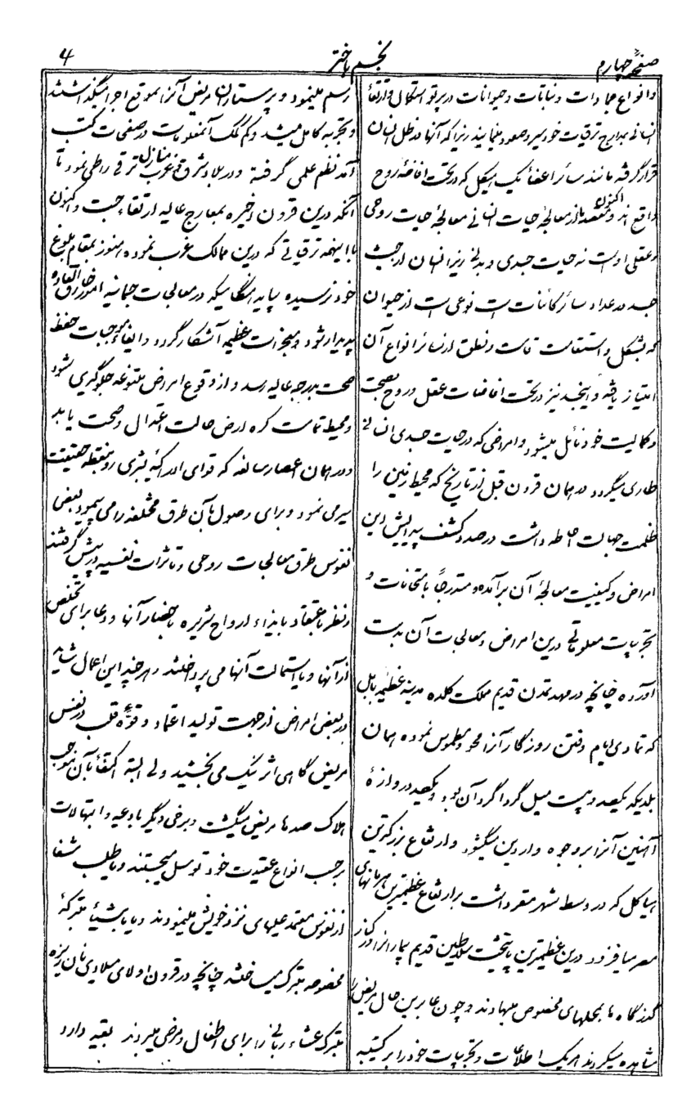 صفحهٔ چهارم
نجم باختر
۴
و انواع جمادات و نباتات و حیوانات در پرتو استکمال و ارتقاء
انسانی بمدارج ترقیات خود سیر و صعود مینمایند زیرا که آنها در ظل انسان
قرار گرفته مانند سائر اعضاء یک هیکل که در تحت افاضهٔ روح
واقع اند و اکنون مقصد ما از معالجهٔ حیات انسانی معالجهٔ حیات روحی
و عقلی اوست نه حیات جسدی و بدنی زیرا انسان از حیث
جسد در عداد سائر کائنات است نوعی است از حیوان
که بشکل و استقامت قامت و نطق از سائر انواع آن
امتیاز یافته و این جسد نیز در تحت افاضات عقل و روح بصحت
و کمالیت خود نائل میشود و امراضی که در حیات جسدی انسانی
طاری میگردد در همان قرون قبل از تاریخ که محیط زمین را
ظلمت جهالت احاطه داشت درصدد کشف پیدایش این
امراض و کیفیت معالجهٔ آن برآمده و متدرجاً بامتحانات و
تجربیات معلوماتی درین امراض و معالجات آن بدست
آورده چنانچه در مهد تمدن قدیم مملکت کلده مدینه عظیمه بابل
که تمادی ایام و فتن روزگار آنرا محو و مطموس نموده همان
بلدیکه یکصد و بیست میل گرداگرد آن بود و یکصد دروازهٔ
آهنین آنرا بروجوه واردین میگشود و ارتفاع بزرگترین
هیاکل که در وسط شهر مقر داشت بر ارتفاع عظیمترین هرمانهای
مصر میافزود درین عظیمترین پایتخت سلاطین قدیم بیمارانرا در کنار
گذرگاه ها بمحلهای مخصوص مینهادند و چون عابرین حال مریض را
مشاهده میکردند هریک اطلاعات و تجربیات خود را بر کتیبه
رسم مینمود و پرستاران مریض آنرا بموقع اجرا میگذاشتند
و تجربه کامل میشد و کم کم آن معلومات در صفحات کتب
آمده نظم علمی گرفته و در بلاد شرق و غرب منازل ترقی را طی نمود تا
آنکه درین قرون اخیره بمعارج عالیه ارتقاء جست و اکنون
با اینهمه ترقیاتی که درین ممالک غرب نموده هنوز بمقام بلوغ
خود نرسیده بیاید هنگامیکه در معالجات جسمانیه امور خارق العاده
پدیدار شود و معجزات عظیمه آشکار گردد و ایفاء موجبات حفظ
صحت بدرجه عالیه رسد و از وقوع امراض متنوعه جلوگیری شود
و محیط تمامت کره ارض حالت اعتدال و صحت یابد
و در همان اعصار سالفه که قوای ادراکیه بشری رو بنقطه حقیقت
سیر می نمود و برای وصول بآن طرق مختلفه را می پیمود بعضی
نفوس طرق معالجات روحی و تاثرات نفسیه در پیش گرفتند
و نظر باعتقاد بایذاء ارواح شریره باحضار آنها و دعا برای تخلص
از آنها و یا استمالت آنها می پرداختند و هر چند این اعمال شاید
در بعض امراض از جهت تولید اعتماد و قوهٔ قلب در نفس
مریض گاهی اثر نیک می بخشید ولی البته اکتفاء بآن موجب
هلاک صدها مریض میگشت و برخی دیگر بادعیه و ابتهالات
برحسب انواع عقیدت خود توسل میجستند و یا طلب شفا
از نفوس معتمد علیهای نزد خویش مینمودند و یا باشیاء متبرکهٔ
مخصوصه متبرک میساختند چنانچه در قرون اولای میلادی نان ریزه
متبرک عشاء ربانی را برای اطفال و مرضی میبردند بقیه دارد